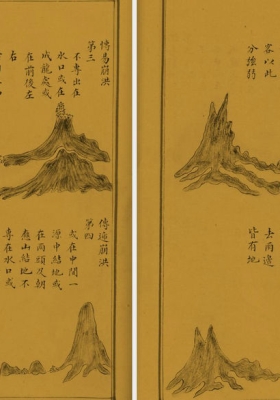 客以此
分強弱
去兩邊
皆有地
傳易崩洪
第三
不專出在
水口或在
成龍處或
在前後左
右
傳逆崩洪
第四
或在中間一
源中結地或
在兩頭及朝
應山結地不
專在水口或